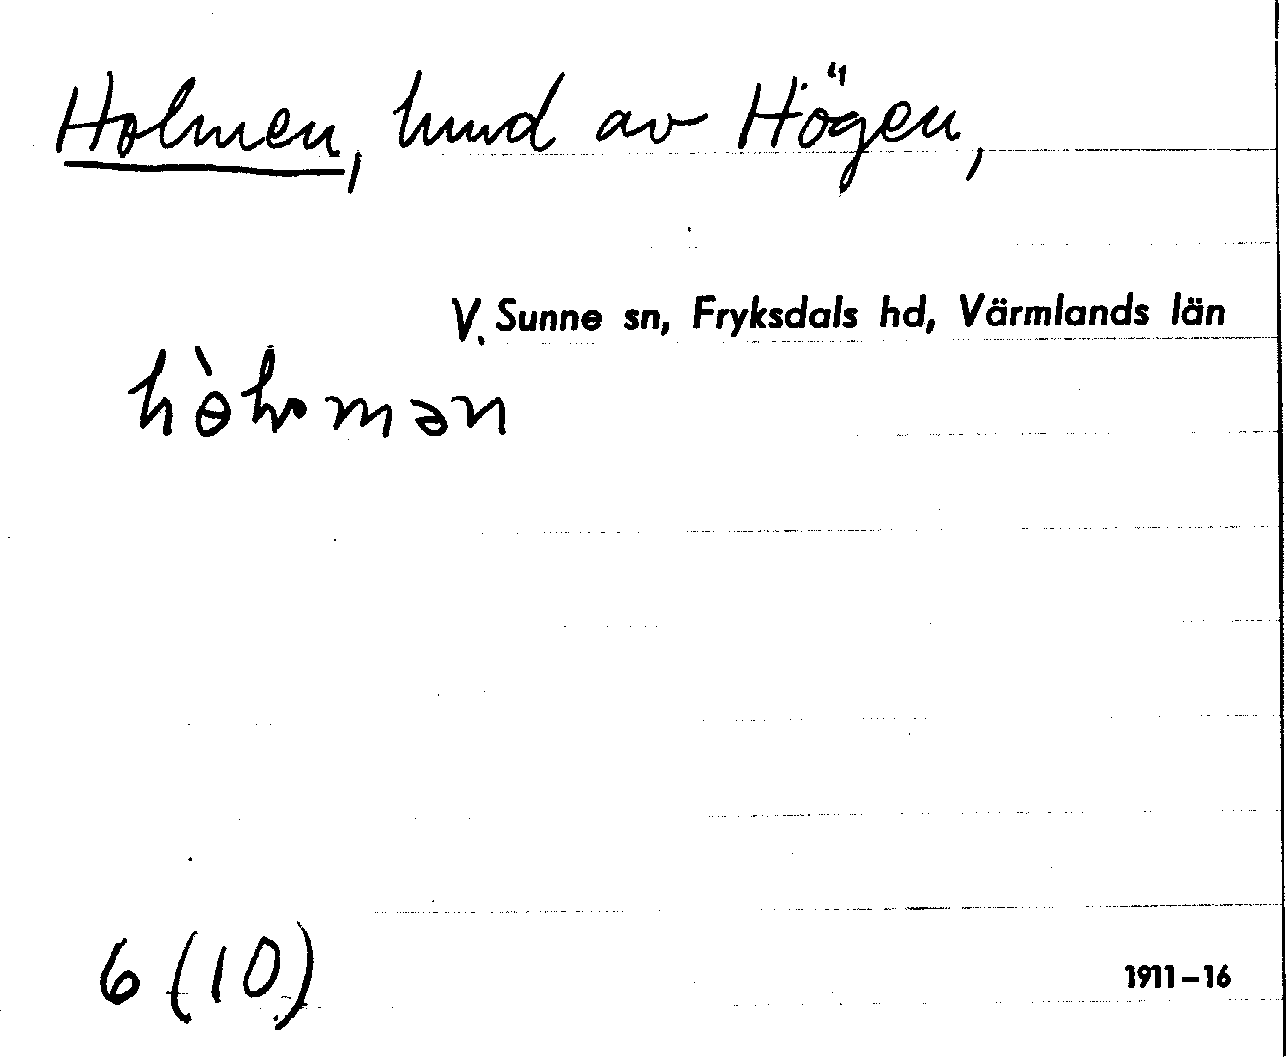 Holmen, hmd av Högen,
V. Sunne sn, Fryksdals hd, Värmlands län
6 (10)
1911–16